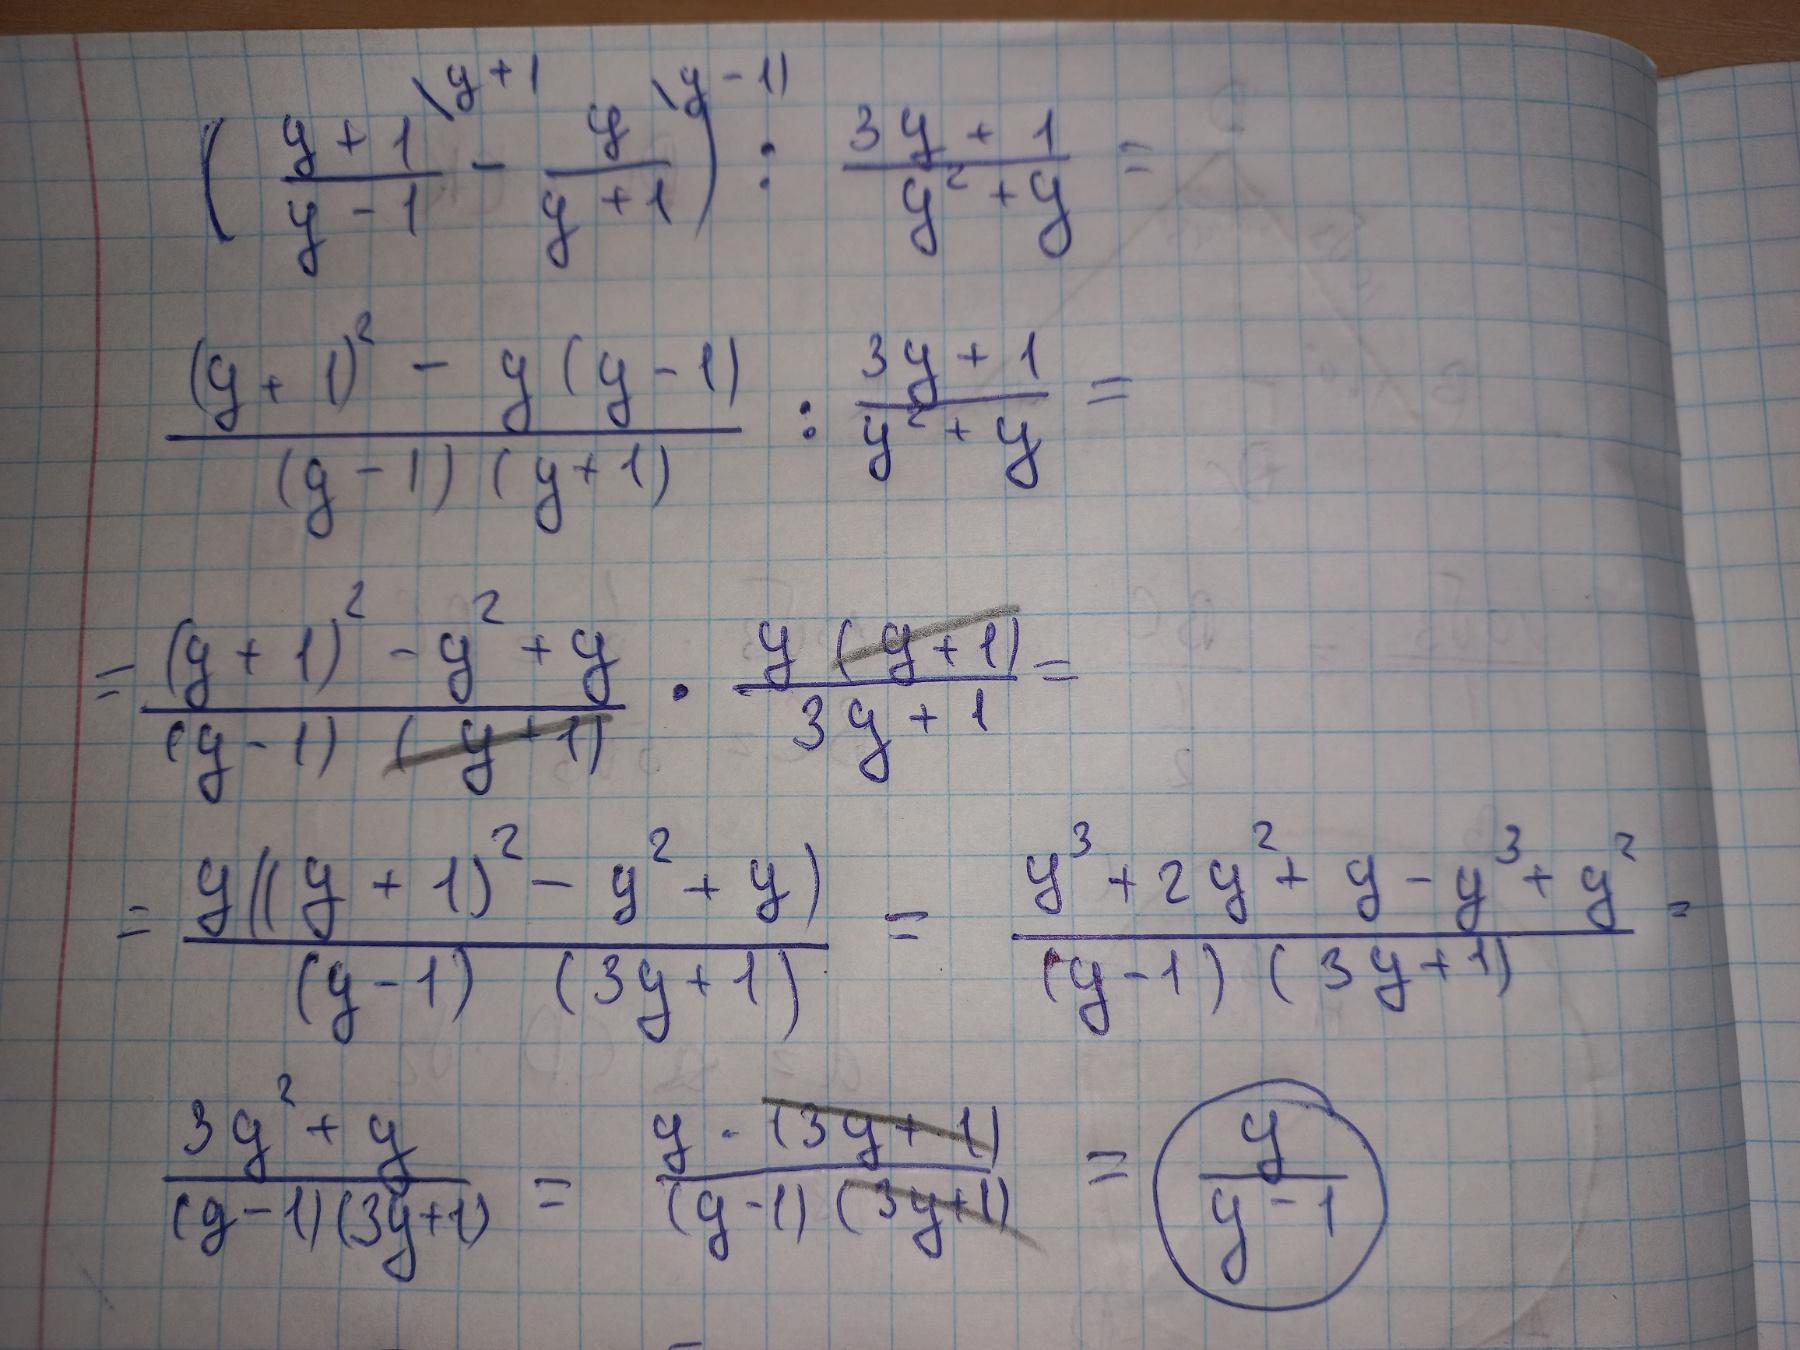 ( (y+1)/(y-1) \y+1 - y/(y+1) \y-1) ) : (3y+1)/(y²+y) =
((y+1)² - y(y-1))/((y-1)(y+1)) : (3y+1)/(y²+y) =
= ((y+1)² - y² + y)/((y-1)(y+1)) · (y(y+1))/(3y+1) =
= (y((y+1)² - y² + y))/((y-1)(3y+1)) = (y³ + 2y² + y - y³ + y²)/((y-1)(3y+1)) =
(3y² + y)/((y-1)(3y+1)) = (y·(3y+1))/((y-1)(3y+1)) = y/(y-1)